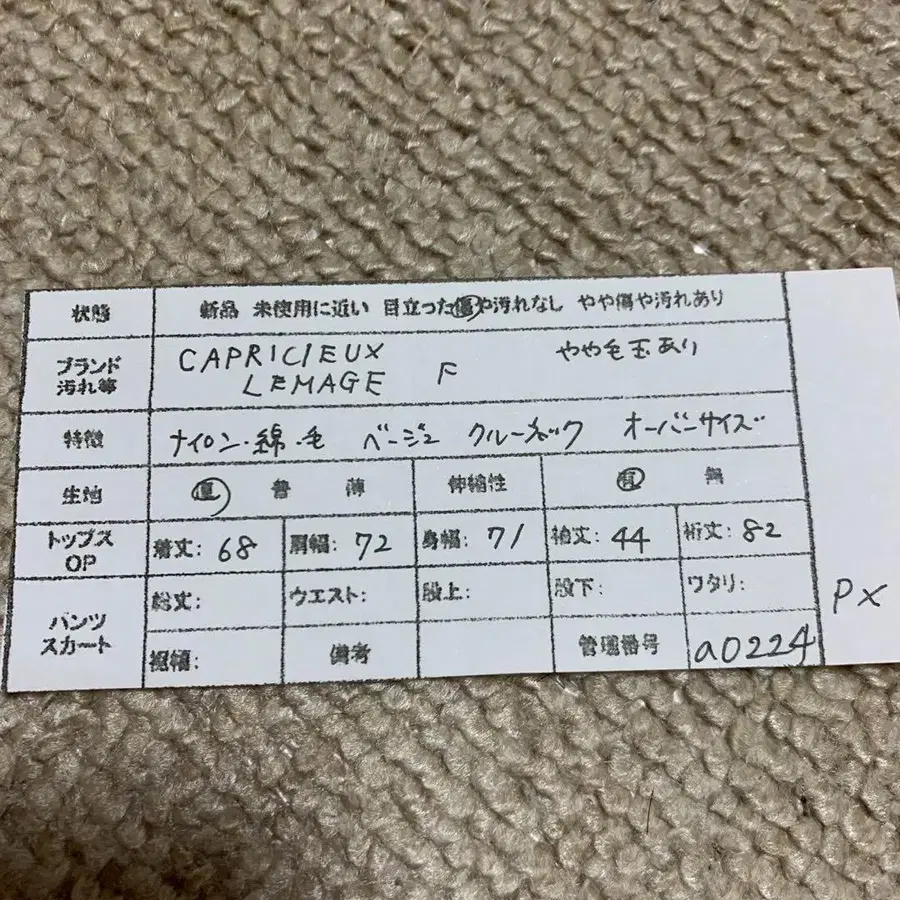 状態 新品 未使用に近い 目立った傷や汚れなし やや傷や汚れあり
ブランド 汚れ等 CAPRICIEUX LEMAGE F やや毛玉あり
特徴 ナイロン・綿・毛 ベージュ クルーネック オーバーサイズ
生地 厚 普 薄 伸縮性 有 無
トップス OP 着丈: 68 肩幅: 72 身幅: 71 袖丈: 44 裄丈: 82
パンツ スカート 総丈: ウエスト: 股上: 股下: ワタリ:
裾幅: 備考 管理番号 a0224
PX